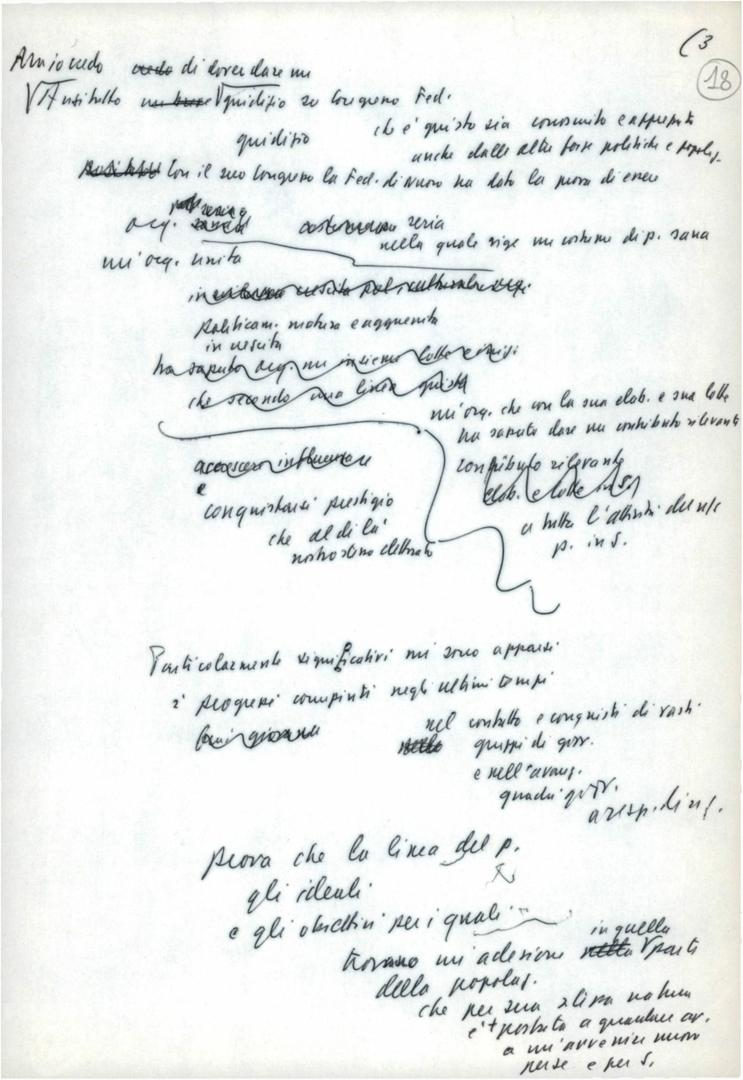 (3
18
di dover dare un
Anzitutto giudizio su Congresso Fed.
giudizio che è giusto sia conosciuto e apprezzato
anche dalle altre forze politiche e popolaz.
Con il suo Congresso la Fed. di nuovo ha dato la prova di essere
org. seria
nella quale vige un costume di p. sana
un'org. unita
politicam. matura e agguerrita
in crescita
ha saputo org. un insieme lotte e
che secondo una linea giusta
un'org. che con la sua elab. e sua lotta
ha saputo dare un contributo rilevante
accrescere influenza
contributo rilevante
e
elab. e lotte in S.
conquistarsi prestigio
a tutta l'attività del n/s
che al di là
p. in S.
nostro stesso elettorato
Particolarmente significativi mi sono apparsi
i progressi compiuti negli ultimi tempi
fra i giovani
nel contatto e conquista di vasti
gruppi di giov.
e nell'avanz.
quadri giov.
a resp. di
prova che la linea del p.
gli ideali
e gli obiettivi per i quali
trovano un'adesione in quella parte
della popolaz.
che per sua stessa natura
è + portata a guardare av.
a un'avvenire nuovo
per sé e per S.